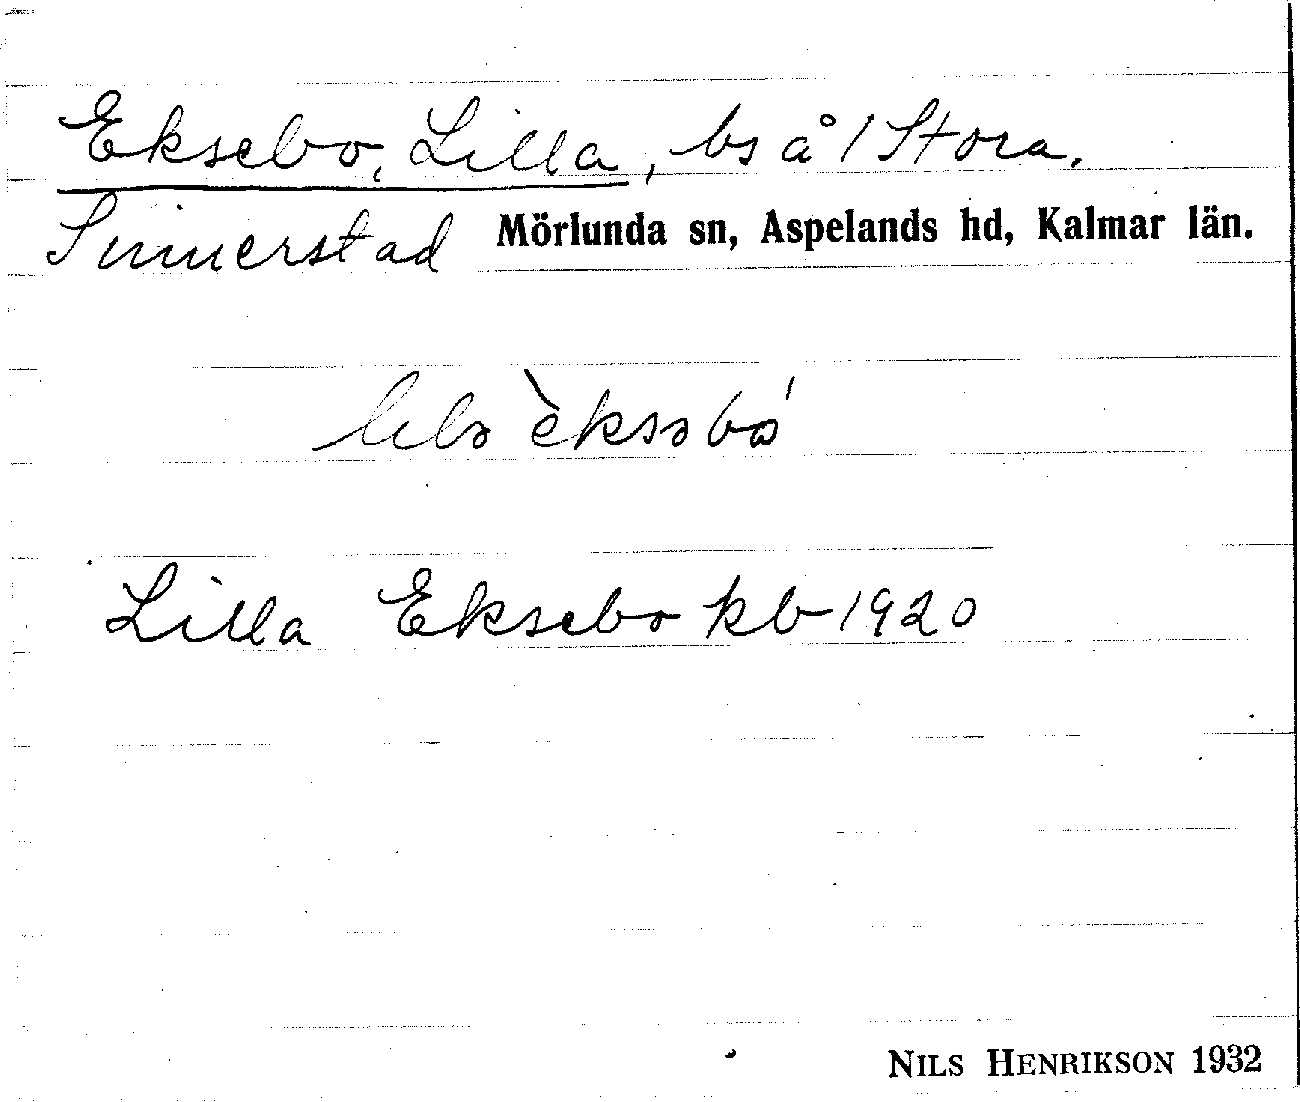 Eksebo, Lilla, bs å 1 Stora.
Sinnerstad Mörlunda sn, Aspelands hd, Kalmar län.
Lilla Eksebo kb 1920
NILS HENRIKSON 1932